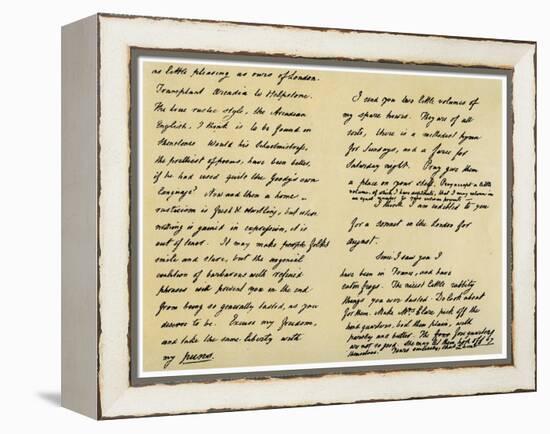 as little pleasing as ours of London.
Transplant Arcadia to Helpstone.
The true rustic style, the Arcadian
English, I think is to be found in
Shenstone. Would his Schoolmistress,
the prettiest of poems, have been better,
if he had used quite the Goody's own
language? Now and then a home
rusticism is fresh & startling, but where
nothing is gained in expression, it is
out of tenor. It may make people
smile and stare, but the ungenial
coalition of barbarous with refined
phrases will prevent you in the end
from being so generally tasted, as you
deserve to be. Excuse my freedom,
and take the same liberty with
my puns.
I send you two little volumes of
my spare hours. They are of all
sorts, there is a methodist hymn
for Sundays, and a farce for
Saturday night. Pray give them
a place on your shelf. Pray accept a little
volume, of which I have duplicate, that I may return in
an equal number to your welcome presents
I think I am indebted to you
for a sonnet in the London for
August.
Since I saw you I
have been in France, and have
eaten frogs. The nicest little rabbity
things you ever tasted. Do look about
for them. Make Mrs. Clare pick off the
hind quarters, boil them plain, with
parsley and butter. The four fore quarters
are not so good. She may let them hop off by
themselves. Yours sincerely,